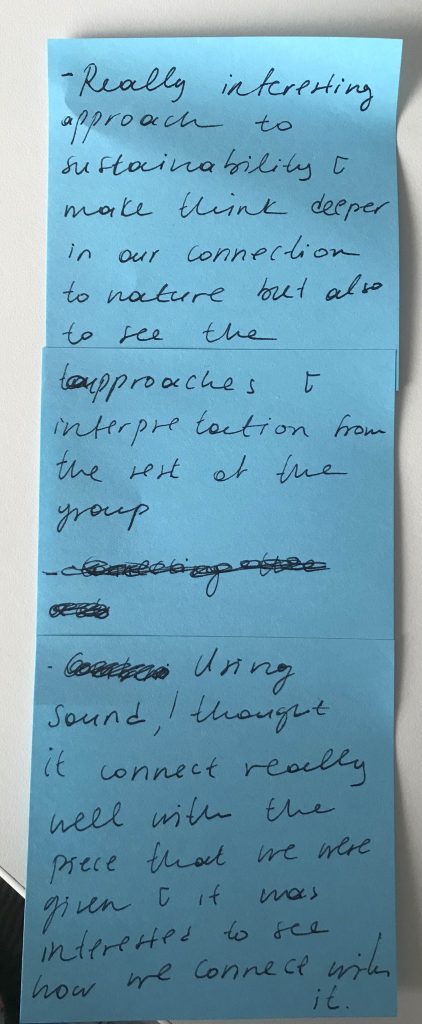 - Really interesting
approach to
sustainability &
make think deeper
in our connection
to nature but also
to see the
approaches &
interpretation from
the rest of the
group
- Using
sound, I thought
it connect really
well with the
piece that we were
given & it was
interested to see
how we connect with
it.